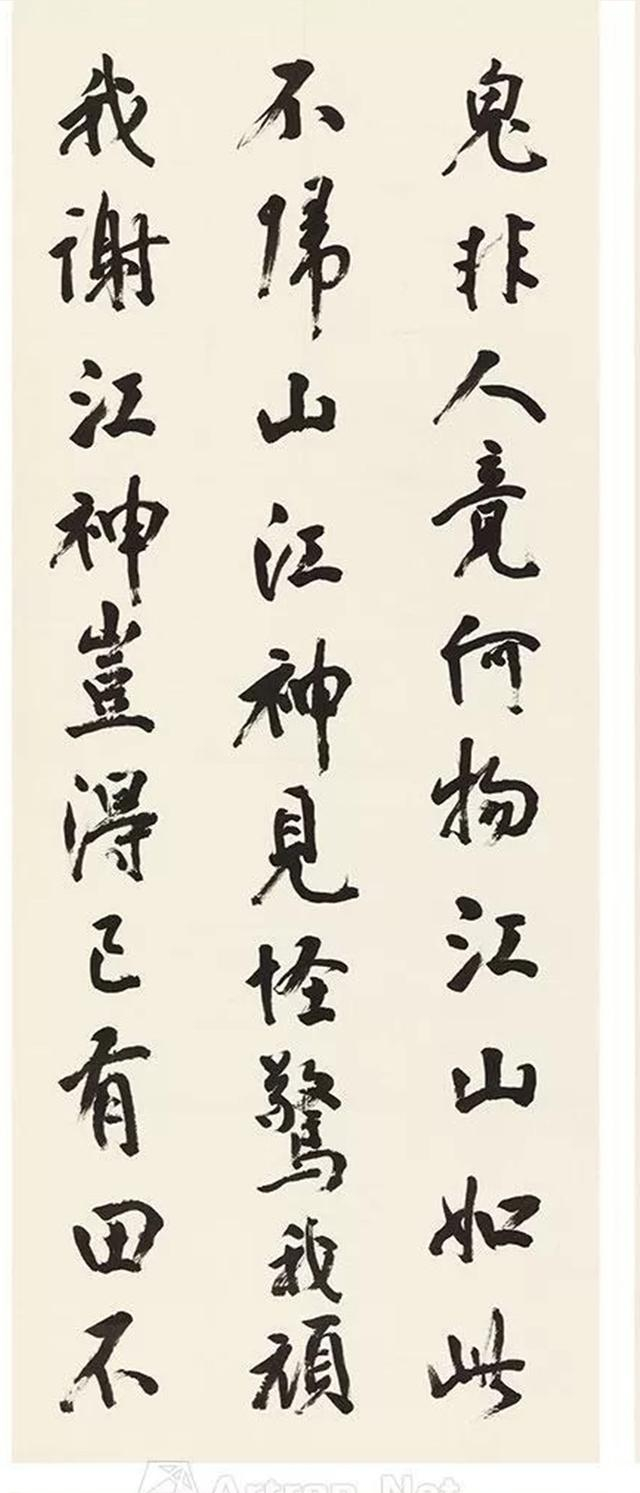 鬼非人竟何物江山如此
不歸山江神見怪驚我頑
我謝江神豈得已有田不
Artron.Net